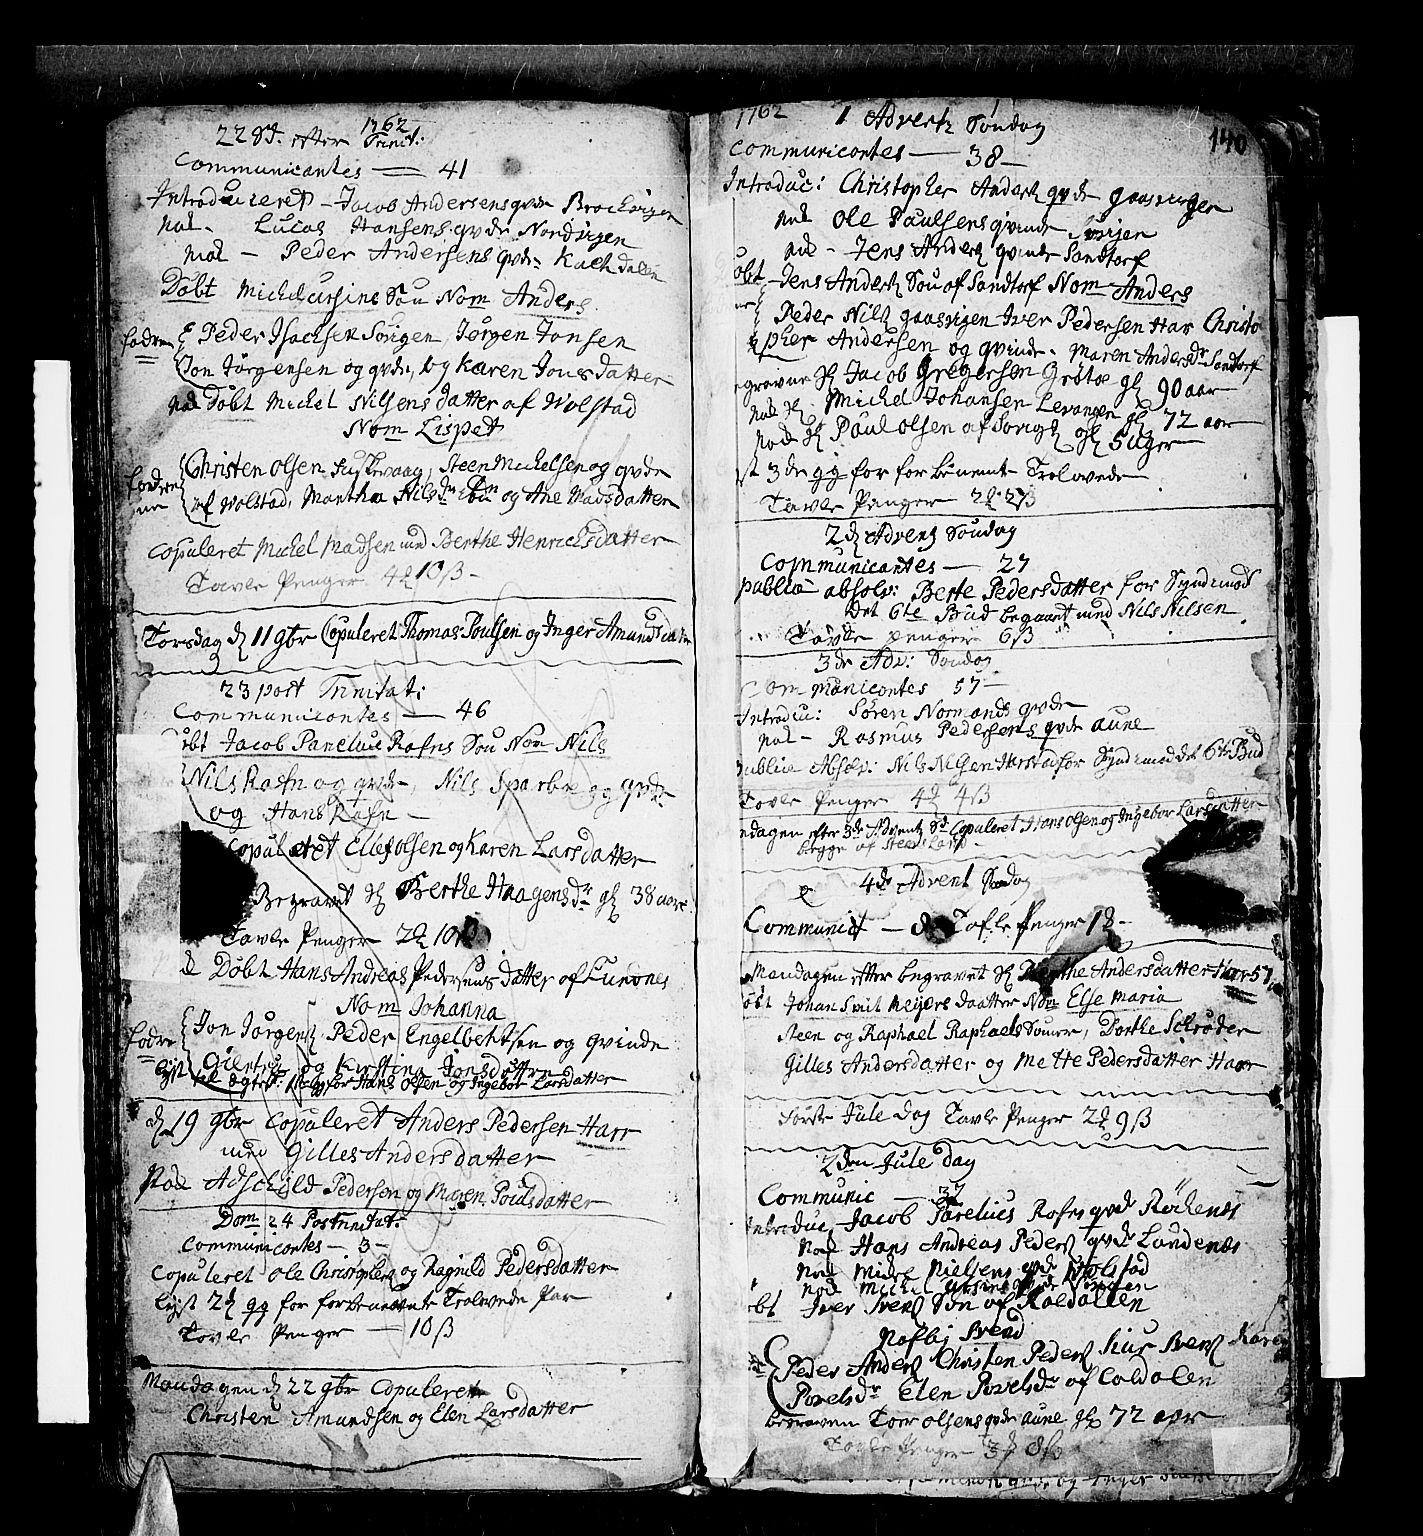 1762
22 Sd. efter Trinit:
Communicantes — 41
Introduceret - Jacob Andersens qvde Brochvigen
nok - Lucas Hansens qvde Nordvigen
nok - Peder Andersens qvde: Kaeldalen
Døbt Michel ursins Søn Nom Anders
fadre Peder Isachsen Sørigen Jørgen Jonsen
Jon Jørgensen og qvde, og Karen Jonsdatter
nok Døbt Michel Nilsens datter af Wolstad
Nom Lispet
fadrene Christen Olsen, Steen Michelsen og qvde
af Wolstad, Martha Nilsdr og Ane Madsdatter
Copuleret Michel Madsen med Berthe Henrichsdatter
Tavle Penger 4 10 β -
Torsdag d 11 9br Copuleret Thomas Poulsen og Inger Amundsdatter
23 post Trinitat:
Communicantes — 46
Jacob Parelius Rafns Søn Nom Nils
Nils Rafn og qvde, Nils Sparboe og qvde
og Hans Rafn -
Copuleret Ellef olsen og Karen Larsdatter
Begravet Berthe Haagensdr 38 aar
Tavle Penger 2 10 β
Døbt Hans Andreas Pedersens datter af Lundnes
Nom Johanna
fadre Jon Jørgens, Peder Engelbretsen og qvinde
og Kirstina Jonsdatter
lyst for Hans Olsen og Ingebor Larsdatter
d 19 9br Copuleret Anders Pedersen Harr
med Gilles Andersdatter
Nok Adschild Pedersen og Maren Poulsdatter
Dom 24 Post rinitat:
Communicontes - 3 -
Copuleret Ole Christophers og Ragnild Pedersdatter
lyst 2 gg for forbenevnte Trolovede Par
Tavle Penger — 10 β
Mandagen d 22 9br Copuleret
Christen Amundsen og Elen Larsdatter
140
1762 1 Advents Søndag
Communicontes — 38 -
Introduc: Christopher Anders qvde gaasvigen
nok Ole Paulsens qvinde
nok - Jens Anders qvinde Sandtorf
Døbt Jens Anders Søn af Sandtorf Nom Anders
Peder Nils gaasvigen Iver Pedersen Har Christo
pher Andersen og qvinde. Maren Andersdr Sandtorf
Jacob Gregersen Grøtøe 90 aar
nok Michel Johansen Levangen 72 aar
nok Paul olsen af 5 uger
3de gg for forbenemt Trolovede
Tavle Penger 2 2 β
2 Advent Søndag
Communicantes — 27
publice absolv: Berte Pedersdatter for Synd imod
det 6te Bud begaaet med Nils Nilsen
Tavle penger 6 β
3de Adv: Søndag
Communicontes 57 —
Introduc: Søren Normands qvde
nok - Rasmus Pedersens qvde aune
Publice Absolv: Nils Nilsen for Synd imod det 6te Bud
Tavle Penger 4 4 β
efter 3de Advent Sd Copuleret Hans Olsen og Ingebor Larsdatter
begge af Steensland -
4de Advent Søndag
Communic — 8 Tafle Penger 18 -
Mandagen efter begravet Berthe Andersdatter Harr 57
Johan Smit Meyers daatter Nom Else Maria
Steen og Raphael Raphaels Sønner, Dorthe Schrøder
Gilles Andersdatter og Mette Pedersdatter Harr
Første Jule dag Tavle Penger 2 9 β
2den Jule dag
Communic — 37
Introduc Jacob Parelius Rafns qvde
nok Hans Andreas Peders qvde Lundenes
nok Michel Nielsens qvde Wolstad
nok Michel ursins
Iver Svens Søn af Kaeldalen
Svend
Peder Anders Christen Peders Svens Karen
Povelsdr Elen Povelsdr af Caldalen
begraven Tore olsens qvde aune 72 aar
Tavle Penger 3 8 β
og Inger